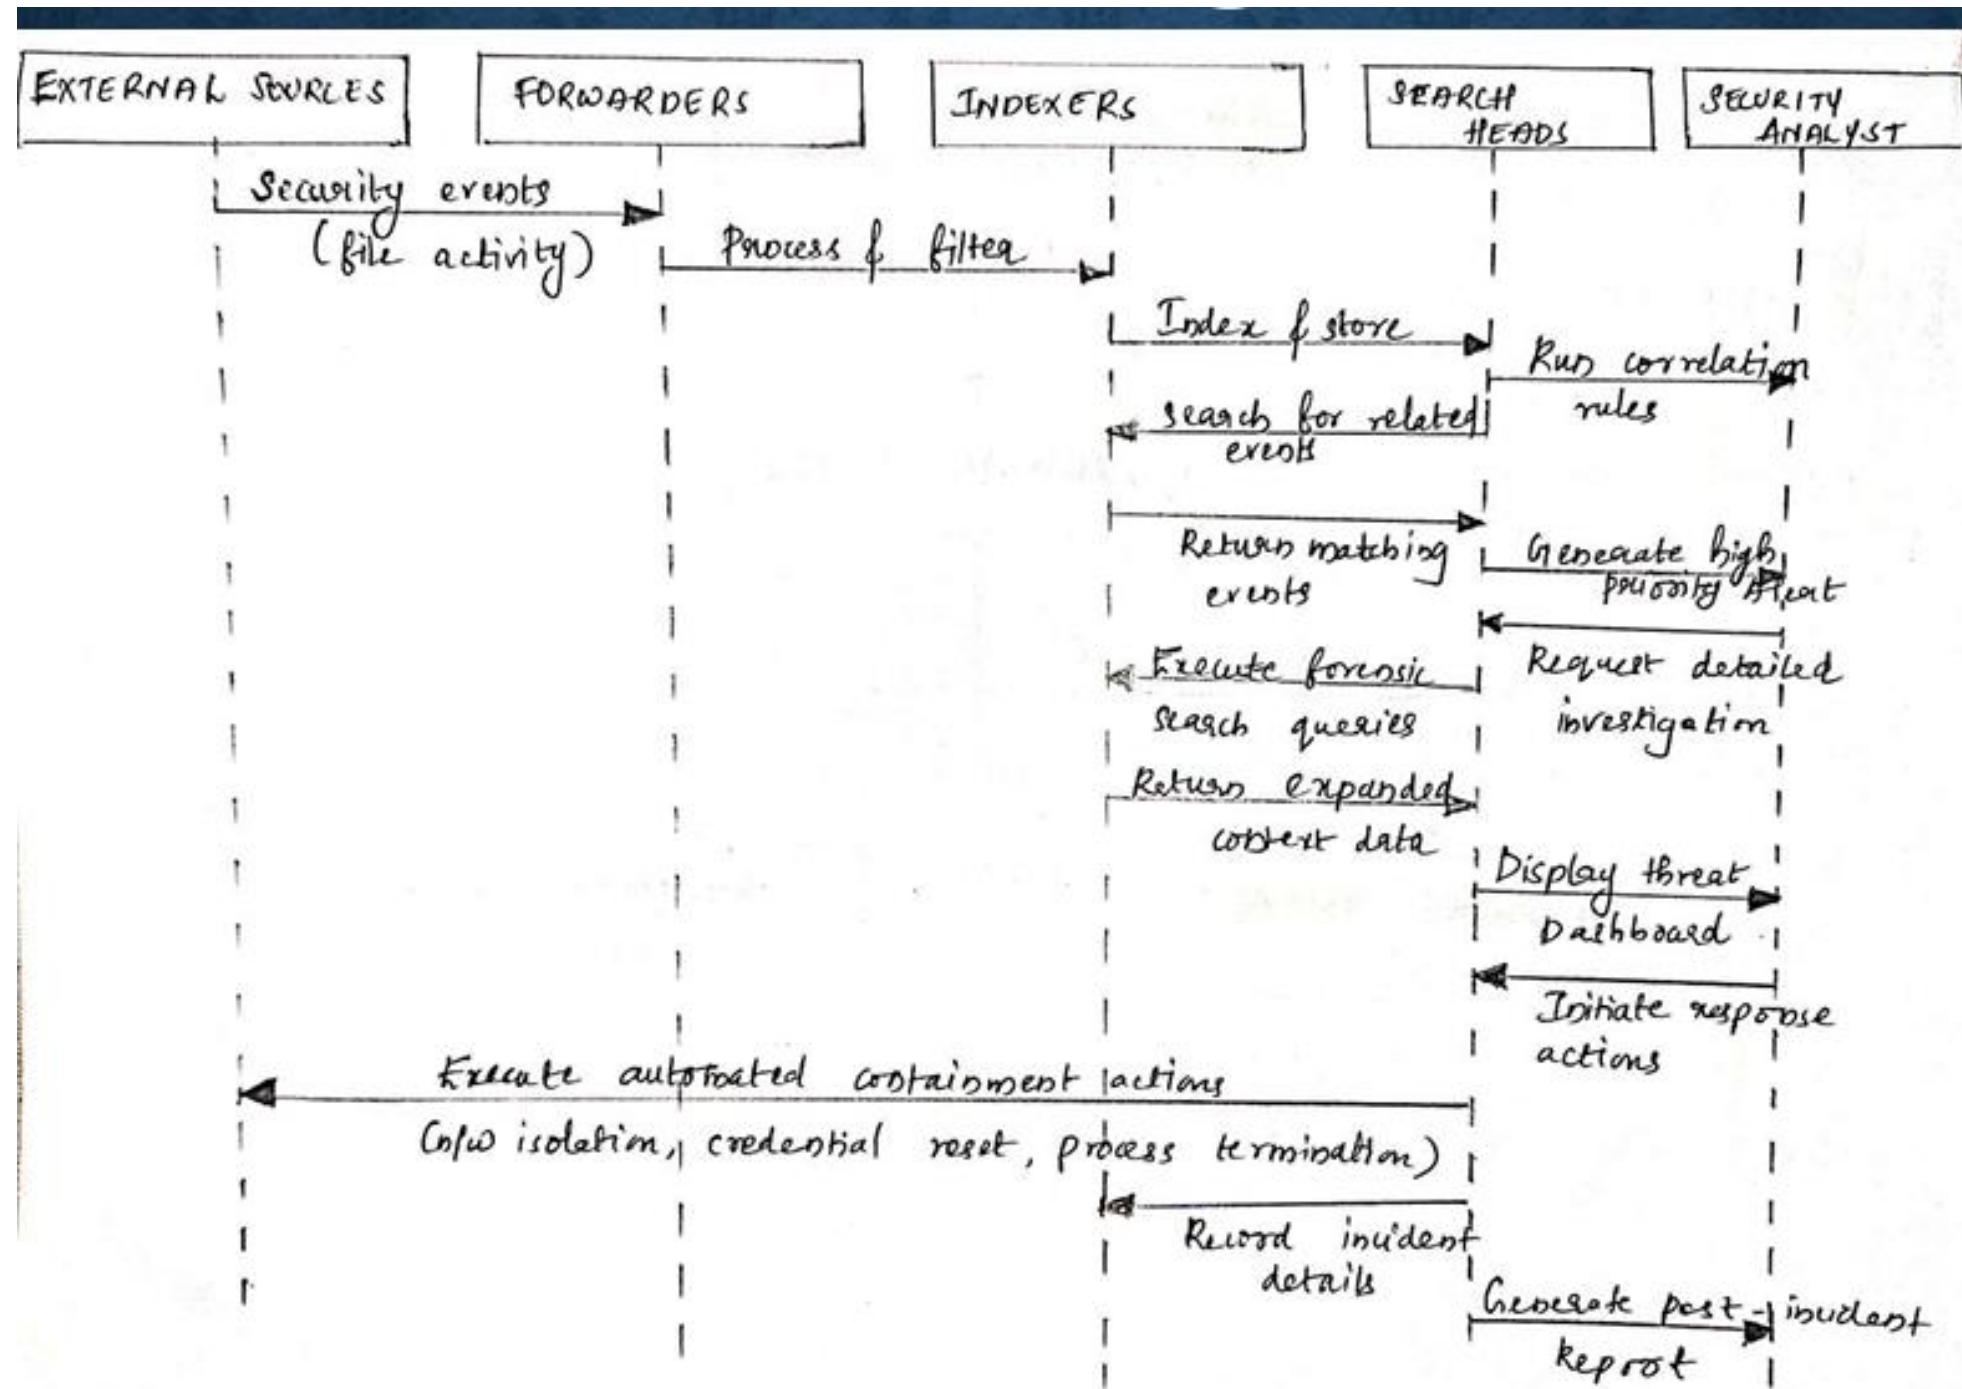 EXTERNAL SOURCES
FORWARDERS
INDEXERS
SEARCH
HEADS
SECURITY
ANALYST
Security events
(file activity)
Process & filter
Index & store
Run correlation
rules
search for related
events
Return matching
events
Generate high
priority Alert
Request detailed
investigation
Execute forensic
search queries
Return expanded
context data
Display threat
Dashboard
Initiate response
actions
Execute automated containment actions
(n/w isolation, credential reset, process termination)
Record incident
details
Generate post-incident
Reprot